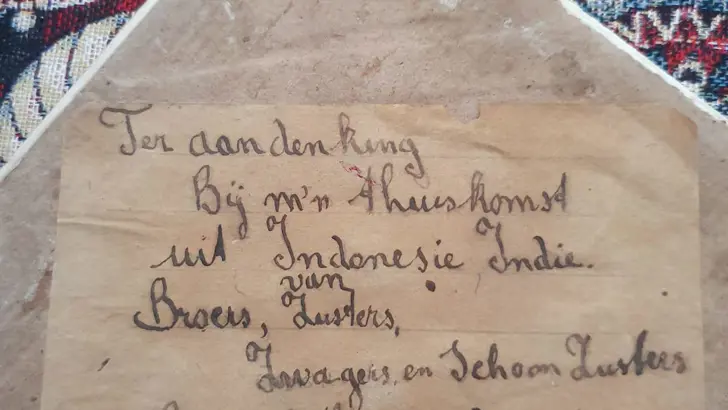 Ter aandenking
Bij m'n thuiskomst
uit Indonesie Indie.
van
Broers, Zusters,
Zwagers, en Schoon Zusters